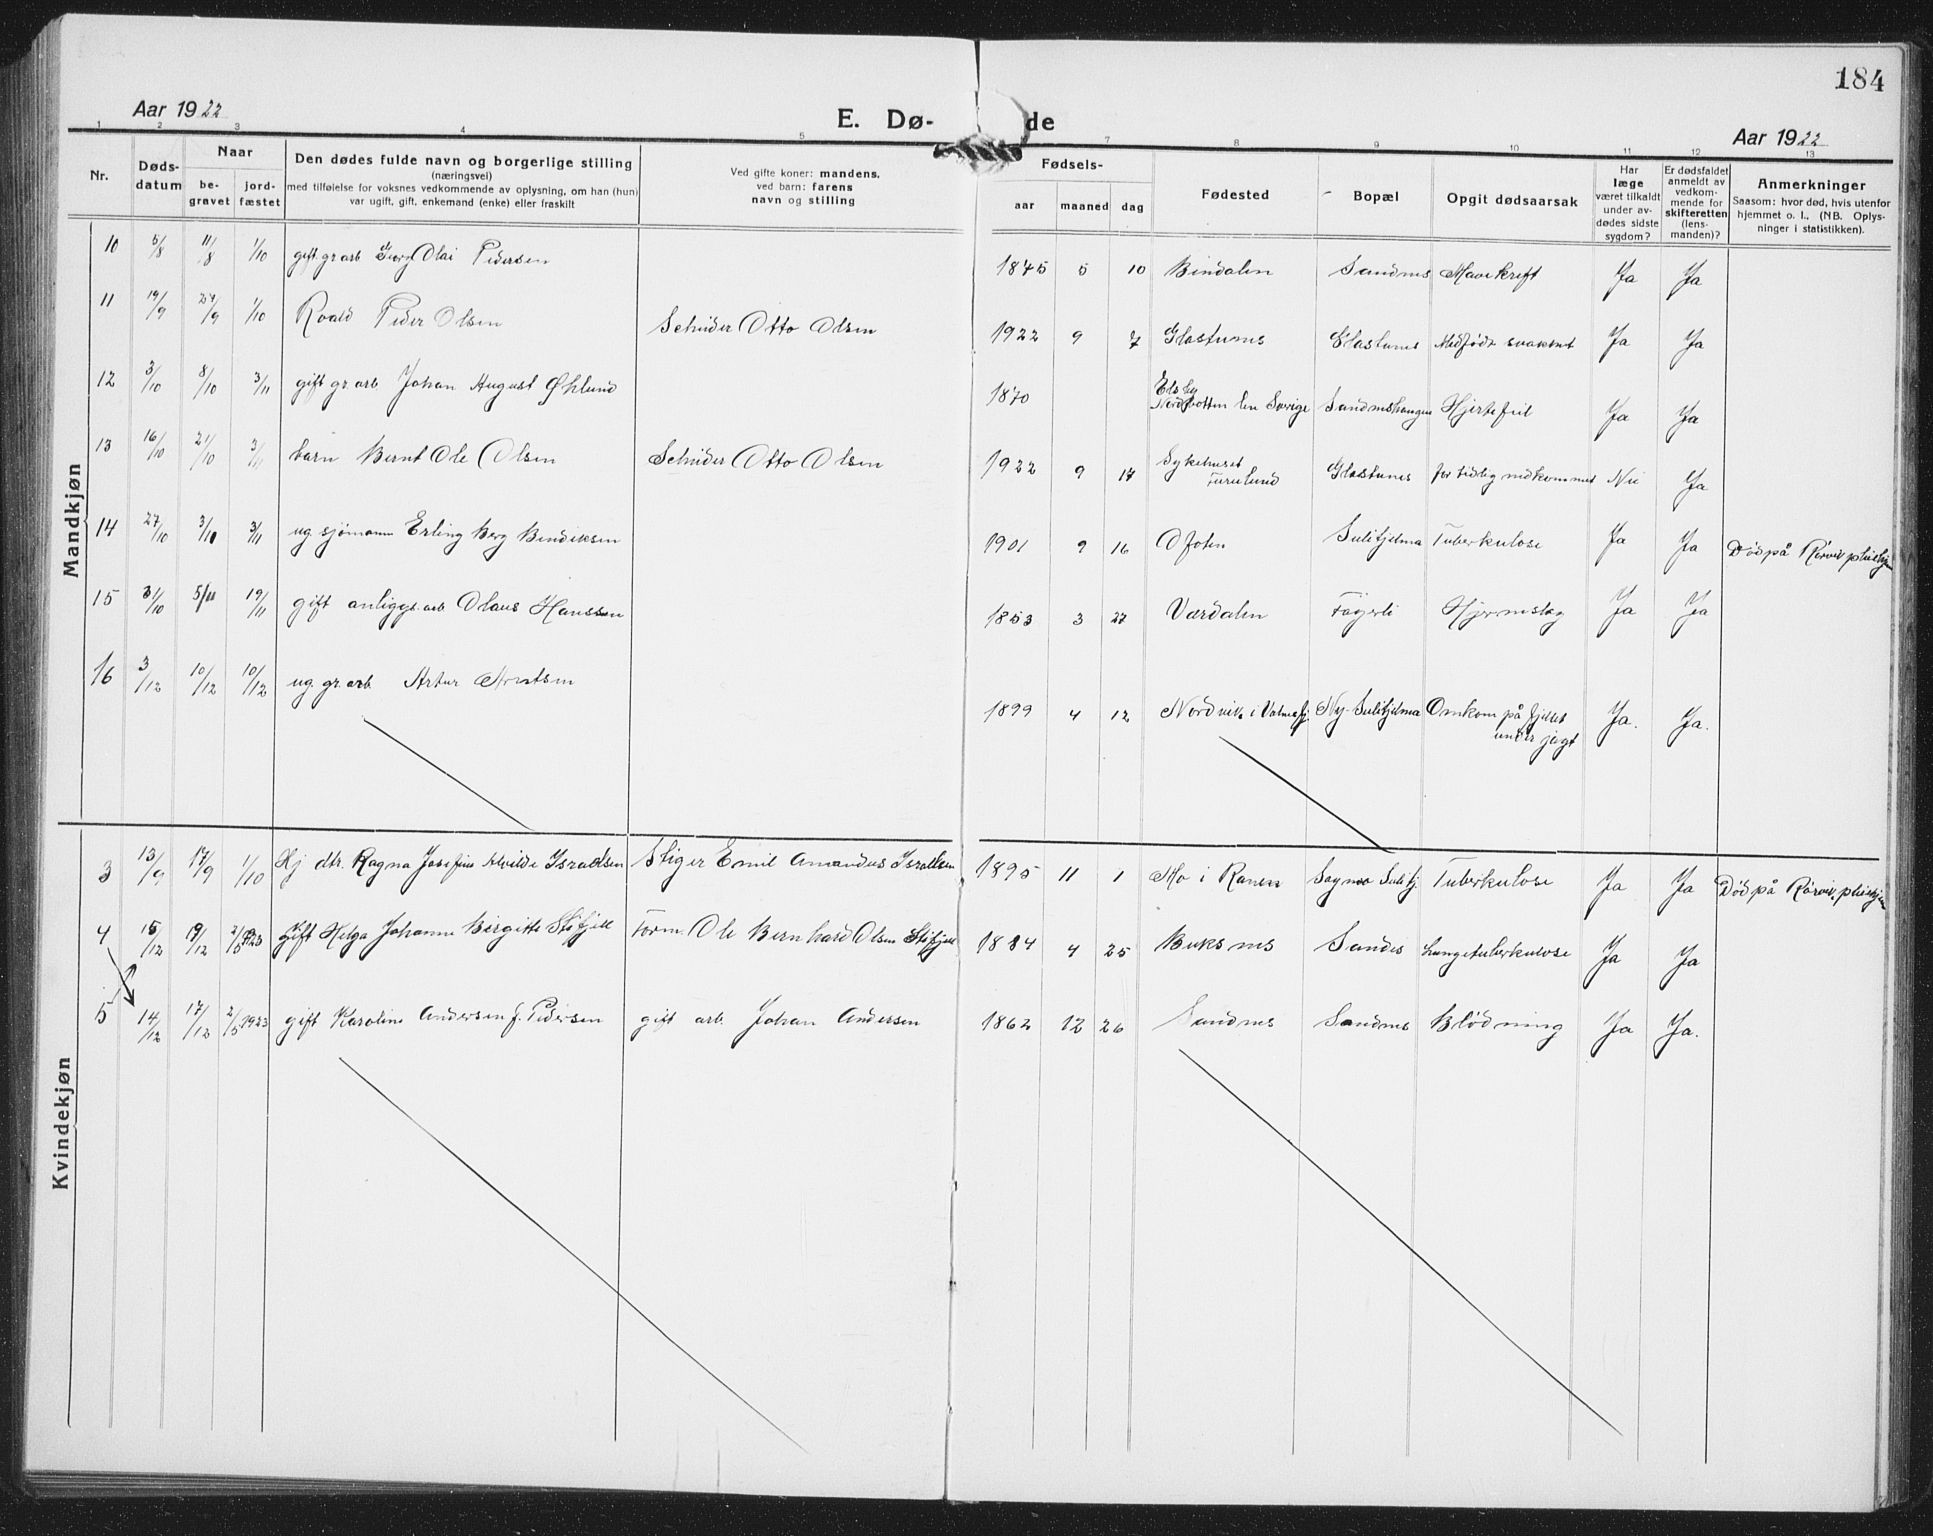 184
Aar 1922
E. Dø-
de
Aar 1922
1 2 3 4 5 7 8 9 10 11 12 13
Nr.
Døds-
datum
Naar
be-
gravet
jord-
fæstet
Den dødes fulde navn og borgerlige stilling
(næringsvei)
med tilføielse for voksnes vedkommende av oplysning, om han (hun)
var ugift, gift, enkemand (enke) eller fraskilt
Ved gifte koner: mandens,
ved barn: farens
navn og stilling
Fødsels-
aar maaned dag
Fødested
Bopæl
Opgit dødsaarsak
Har
læge
været tilkaldt
under av-
dødes sidste
sygdom?
Er dødsfaldet
anmeldt av
vedkom-
mende for
skifteretten
(lens-
manden)?
Anmerkninger
Saasom: hvor død, hvis utenfor
hjemmet o. l., (NB. Oplys-
ninger i statistikken).
Mandkjøn
10 5/8 11/8 1/10 gift gr.arb Georg Olai Pedersen 1845 5 10 Bindalen Sandnes Mavekreft Ja Ja
11 19/9 27/9 1/10 Roald Peder Olsen Scheider Otto Olsen 1922 9 7 Glastunes Glastunes Medfødt svakhet Ja Ja
12 3/10 8/10 3/11 gift gr arb Johan August Øhlund 1870 Norrbotten len Sverige Sandneshaugen Hjertefeil Ja Ja
13 16/10 21/10 3/11 barn Bernt Ole Olsen Scheider Otto Olsen 1922 9 17 Sykehuset
Furulund Glastunes for tidlig nedkommet Nei Ja
14 27/10 3/10 3/11 ug sjømann Erling Berg Bendiksen 1901 9 16 Ofoten Sulitjelma Tuberkulose Ja Ja Død på Rørvik pleiehjem
15 31/10 5/11 19/11 gift anliggs.arb Olaus Hanssen 1853 3 27 Værdalen Fagerli Hjerneslag Ja Ja
16 3/12 10/12 10/12 ug. gr.arb Artur Arntsen 1899 4 12 Nordvik i Valnesfj. Ny-Sulitjelma Omkom på fjellet
under jagt Ja. Ja.
Kvindekjøn
3 13/9 17/9 1/10 Hj dtr. Ragna Josefine Alvilde Israelsen Stiger Emil Amandus Israelsen 1895 11 1 Mo i Ranen Sagmo Sulitj. Tuberkulose Ja Ja Død på Rørvik pleiehjem
4 15/12 19/12 2/5 1923 Gift Helga Johanne Birgitte Stifjell Form. Ole Bernhard Olsen Stifjell 1884 4 25 Buksnes Sandes Lungetuberkulose Ja Ja
5 14/12 17/12 2/5 1923 gift Karoline Andersen f. Pedersen gift arb. Johan Andersen 1862 12 26 Sandnes Sandnes Blødning Ja Ja.